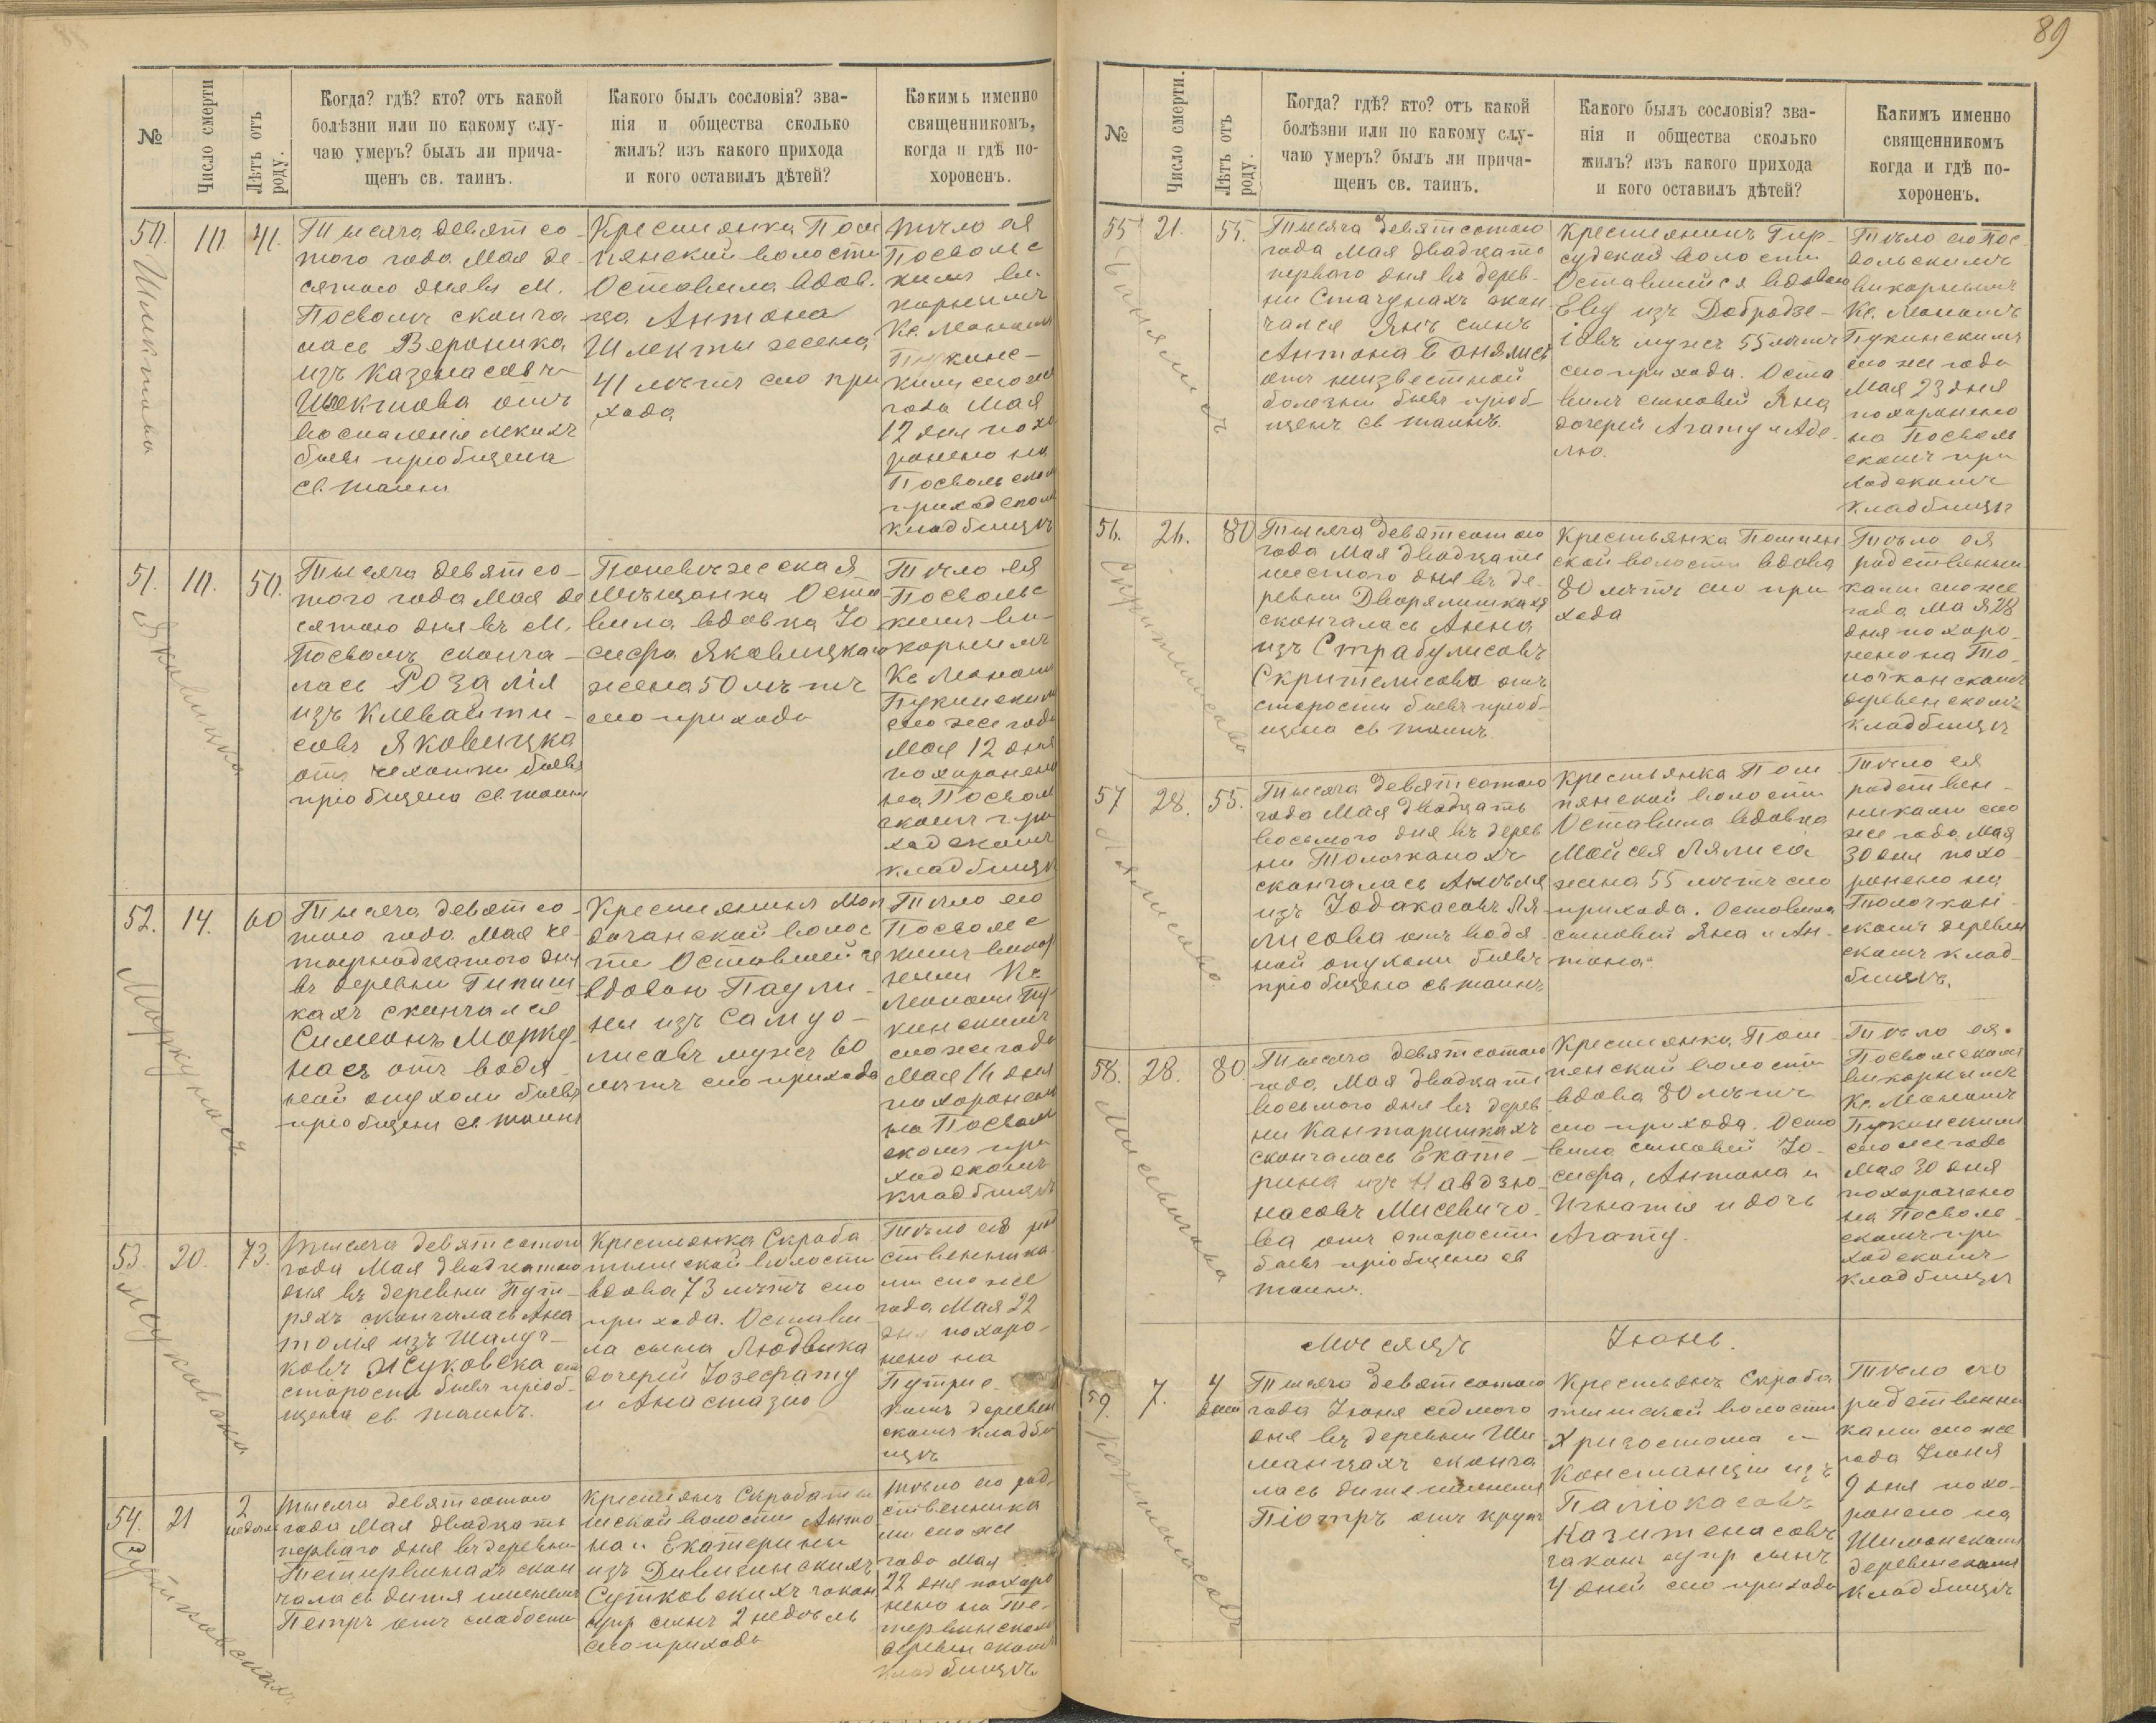 89
№
Число смерти
Лѣтъ отъ роду.
Когда? гдѣ? кто? отъ какой
болѣзни или по какому слу-
чаю умеръ? былъ ли прича-
щенъ св. таинъ.
Какого былъ сословія? зва-
нія и общества сколько
жилъ? изъ какого прихода
и кого оставилъ дѣтей?
Какимъ именно
священникомъ,
когда и гдѣ по-
хороненъ.
50. 10. 41.
Шлектова
Тысяча девятсо-
того года Мая де-
сятого дня въ М.
Посволѣ сконча
лась Вероника
изъ Казенасовъ
Шлектова отъ
воспаленія легкихъ
бывъ пріобщена
св. таинъ
Крестьянка Пом
пянской волости
Оставила вдов.
ца Антона
Шлекты жена
41 лѣтъ сего при
хода
Тѣло ея
Посвольс
кимъ ви
карнымъ
Кс. Леономъ
Пукинс-
кимъ сего же
года Мая
12 дня похо
ронено на
Посвольском
приходском
кладбищѣ
51. 10. 50.
Яковицка
Тысяча девятсо-
того года Мая де
сятого дня въ М.
Посволѣ сконча-
лась Розалія
изъ Клевайти-
совъ Яковицка
отъ чехотки бывъ
пріобщена св. таинъ
Поневѣжеская
Мѣщанка Оста
вила вдовца Іо
сифа Яковицкаго
жена 50 лѣтъ
сего прихода
Тѣло ея
Посвольс
кимъ ви-
карнымъ
Кс Леономъ
Пукинским
сего же года
Мая 12 дня
похоронено
на Посвол
скомъ при
ходскомъ
кладбищѣ
52. 14. 60
Моркунасъ
Тысяча девятсо-
того года Мая че-
тырнадцатого дня
въ деревни Гипиш
кахъ скончался
Симеонъ Морку
насъ отъ водя
ной опухоли бывъ
пріобщенъ св таинъ
Крестьянинъ
волос
ти Оставшейся
вдовою Паули-
ны изъ Самуо-
лисовъ мужъ 60
лѣтъ сего прихода
Тѣло его
Посволс
кимъ викар
нымъ Кс
Леономъ Пу
кинскимъ
сего же года
Мая 16 дня
похоронено
на Посволь
скомъ при
ходскомъ
кладбищѣ
53. 20. 73.
Жуковска
Тысяча девятсотого
года Мая двадцатого
дня въ деревни Путы-
ряхъ скончалась Ана
толія изъ Шалуч-
ковъ Жуковска отъ
старости бывъ пріоб-
щена св. таинъ.
Крестьянка Скроба
тишской волости
вдова 73 лѣтъ сего
прихода. Остави-
ла сына Людвика
дочерей Іозефату
и Анастазію
Тѣло ея род
ственника
ми сего же
года Мая 22
дня похоро-
нено на
комъ деревен
скомъ кладби
щѣ
54. 21 2 недѣли
Тысяча девятсотого
года Мая двадцать
первого дня въ деревни
скон
чалась дитя именем
Петръ отъ слабости
Крестьянъ Скробаты
шской волости Анто
на и Екатерины
изъ Дивигинскихъ
Сутковскихъ закон
сынъ 2 недѣль
сего прихода
Тѣло его род-
ственника
ми сего же
года Мая
22 дня похоро
нено на Те-
деревенскомъ
кладбищѣ.
№
Число смерти.
Лѣтъ отъ роду.
Когда? гдѣ? кто? отъ какой
болѣзни или по какому слу-
чаю умеръ? былъ ли прича-
щенъ св. таинъ.
Какого былъ сословія? зва-
нія и общества сколько
жилъ? изъ какого прихода
и кого оставилъ дѣтей?
Какимъ именно
священникомъ
когда и гдѣ по-
хороненъ.
55 21. 55.
Тысяча девятсотого
года Мая двадцать
первого дня въ дерев-
ни Стачунахъ скон
чался Янъ сынъ
Антона Бонялисъ
отъ неизвестной
болезни бывъ пріоб-
щенъ св таинъ.
Крестьянинъ Гир-
судской волости
Оставшійся вдовою
Еву изъ Добродзе-
іовъ мужъ 55 лѣтъ
сего прихода. Оста
вилъ сыновей Яна
дочерей Агату и Аде-
лю.
Тѣло его Пос
вольскимъ
викарнымъ
Кс. Леономъ
Пукинскимъ
сего же года
Мая 23 дня
похоронено
на Посволь
скомъ при
ходскомъ
кладбищѣ
56. 26. 80
Скрителисова
Тысяча девятсотого
года Мая двадцать
шестого дня въ де-
ревни Дворялишкахъ
скончалась Анна
изъ Страбулисовъ
Скрителисова отъ
старости бывъ пріоб-
щена св таинъ.
Крестьянка Помпян
ской волости вдова
80 лѣтъ сего при
хода
Тѣло ея
родственни
ками сего же
года Мая 28
дня похоро-
нено на То-
лочканскомъ
деревенскомъ
кладбищѣ
57 28. 55.
Лялисова
Тысяча девятсотого
года Мая двадцать
восьмого дня въ дерев
ни Толочканахъ
скончалась Анѣля
изъ Іодакасовъ Ля
лисова отъ водя
ной опухоли бывъ
пріобщена св таинъ
Крестьянка Пом
пянской волости
Оставила вдовца
Мойсея Лялиса
жена 55 лѣтъ сего
прихода. Оставила
сыновей Яна и Ан-
тона.
Тѣло ея
родствен-
никами сего
же года Мая
30 дня похо-
ронено на
Толочкан-
скомъ деревен
скомъ клад-
бищѣ.
58. 28. 80
Мисевичова
Тысяча девятсотого
года Мая двадцать
восьмого дня въ дерев
ни Кантаришкахъ
скончалась Екате-
рина изъ Навдзю-
насовъ Мисевичо-
ва отъ старости
бывъ пріобщена св
таинъ.
Крестьянка Пом-
пянской волости
вдова 80 лѣтъ
сего прихода. Оста
вила сыновей Іо-
сифа, Антона и
Игнатія и дочь
Агату.
Тѣло ея.
Посвольскимъ
викарнымъ
Кс. Леономъ
Пукинскимъ
сего же года
Мая 30 дня
похоронено
на Посволь-
скомъ при
ходскомъ
кладбищѣ
Мѣсяцъ Іюнь.
59. 7. 4 дней
Тысяча девятсотого
года Іюня седмого
дня въ деревни Ши
манцахъ сконча
лась дитя именемъ
Піотръ отъ крупъ
Крестьянъ Скроба
тишской волости
Хризостома и
Констанціи изъ
Паліокасовъ
сынъ
4 дней сего прихода
Тѣло его
родственни
ками сего же
года Іюня
9 дня похо-
ронено на
Шиманскомъ
деревенскомъ
кладбищѣ